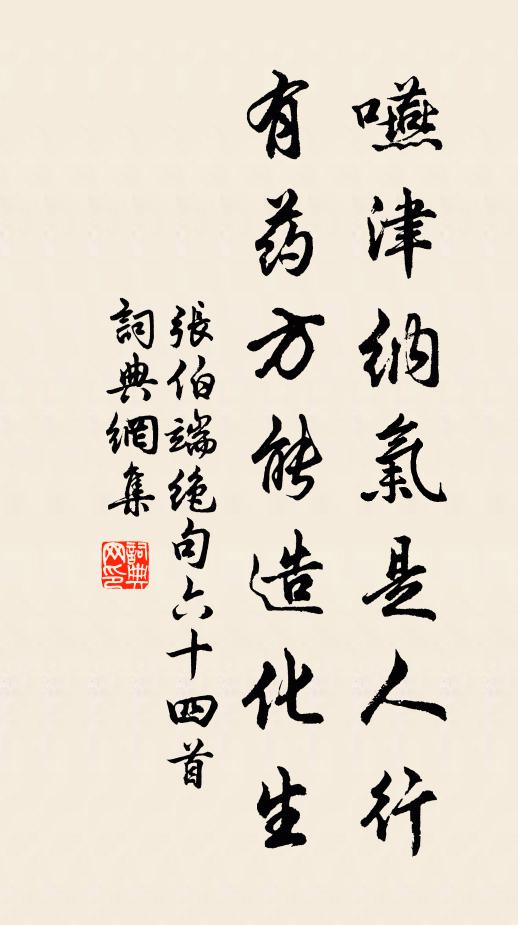 嚥津納氣是人行
有药方能造化生
張伯端绝句六十四首
詞典網集
詞典網印